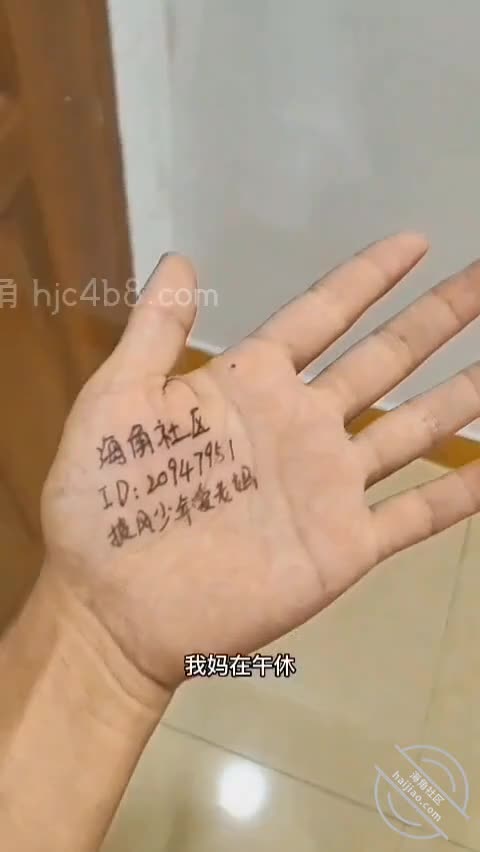 角 hjc4b8.com
海角社区
ID:20947951
披风少年爱老妈
我妈在午休
海角社区
haijiao.com